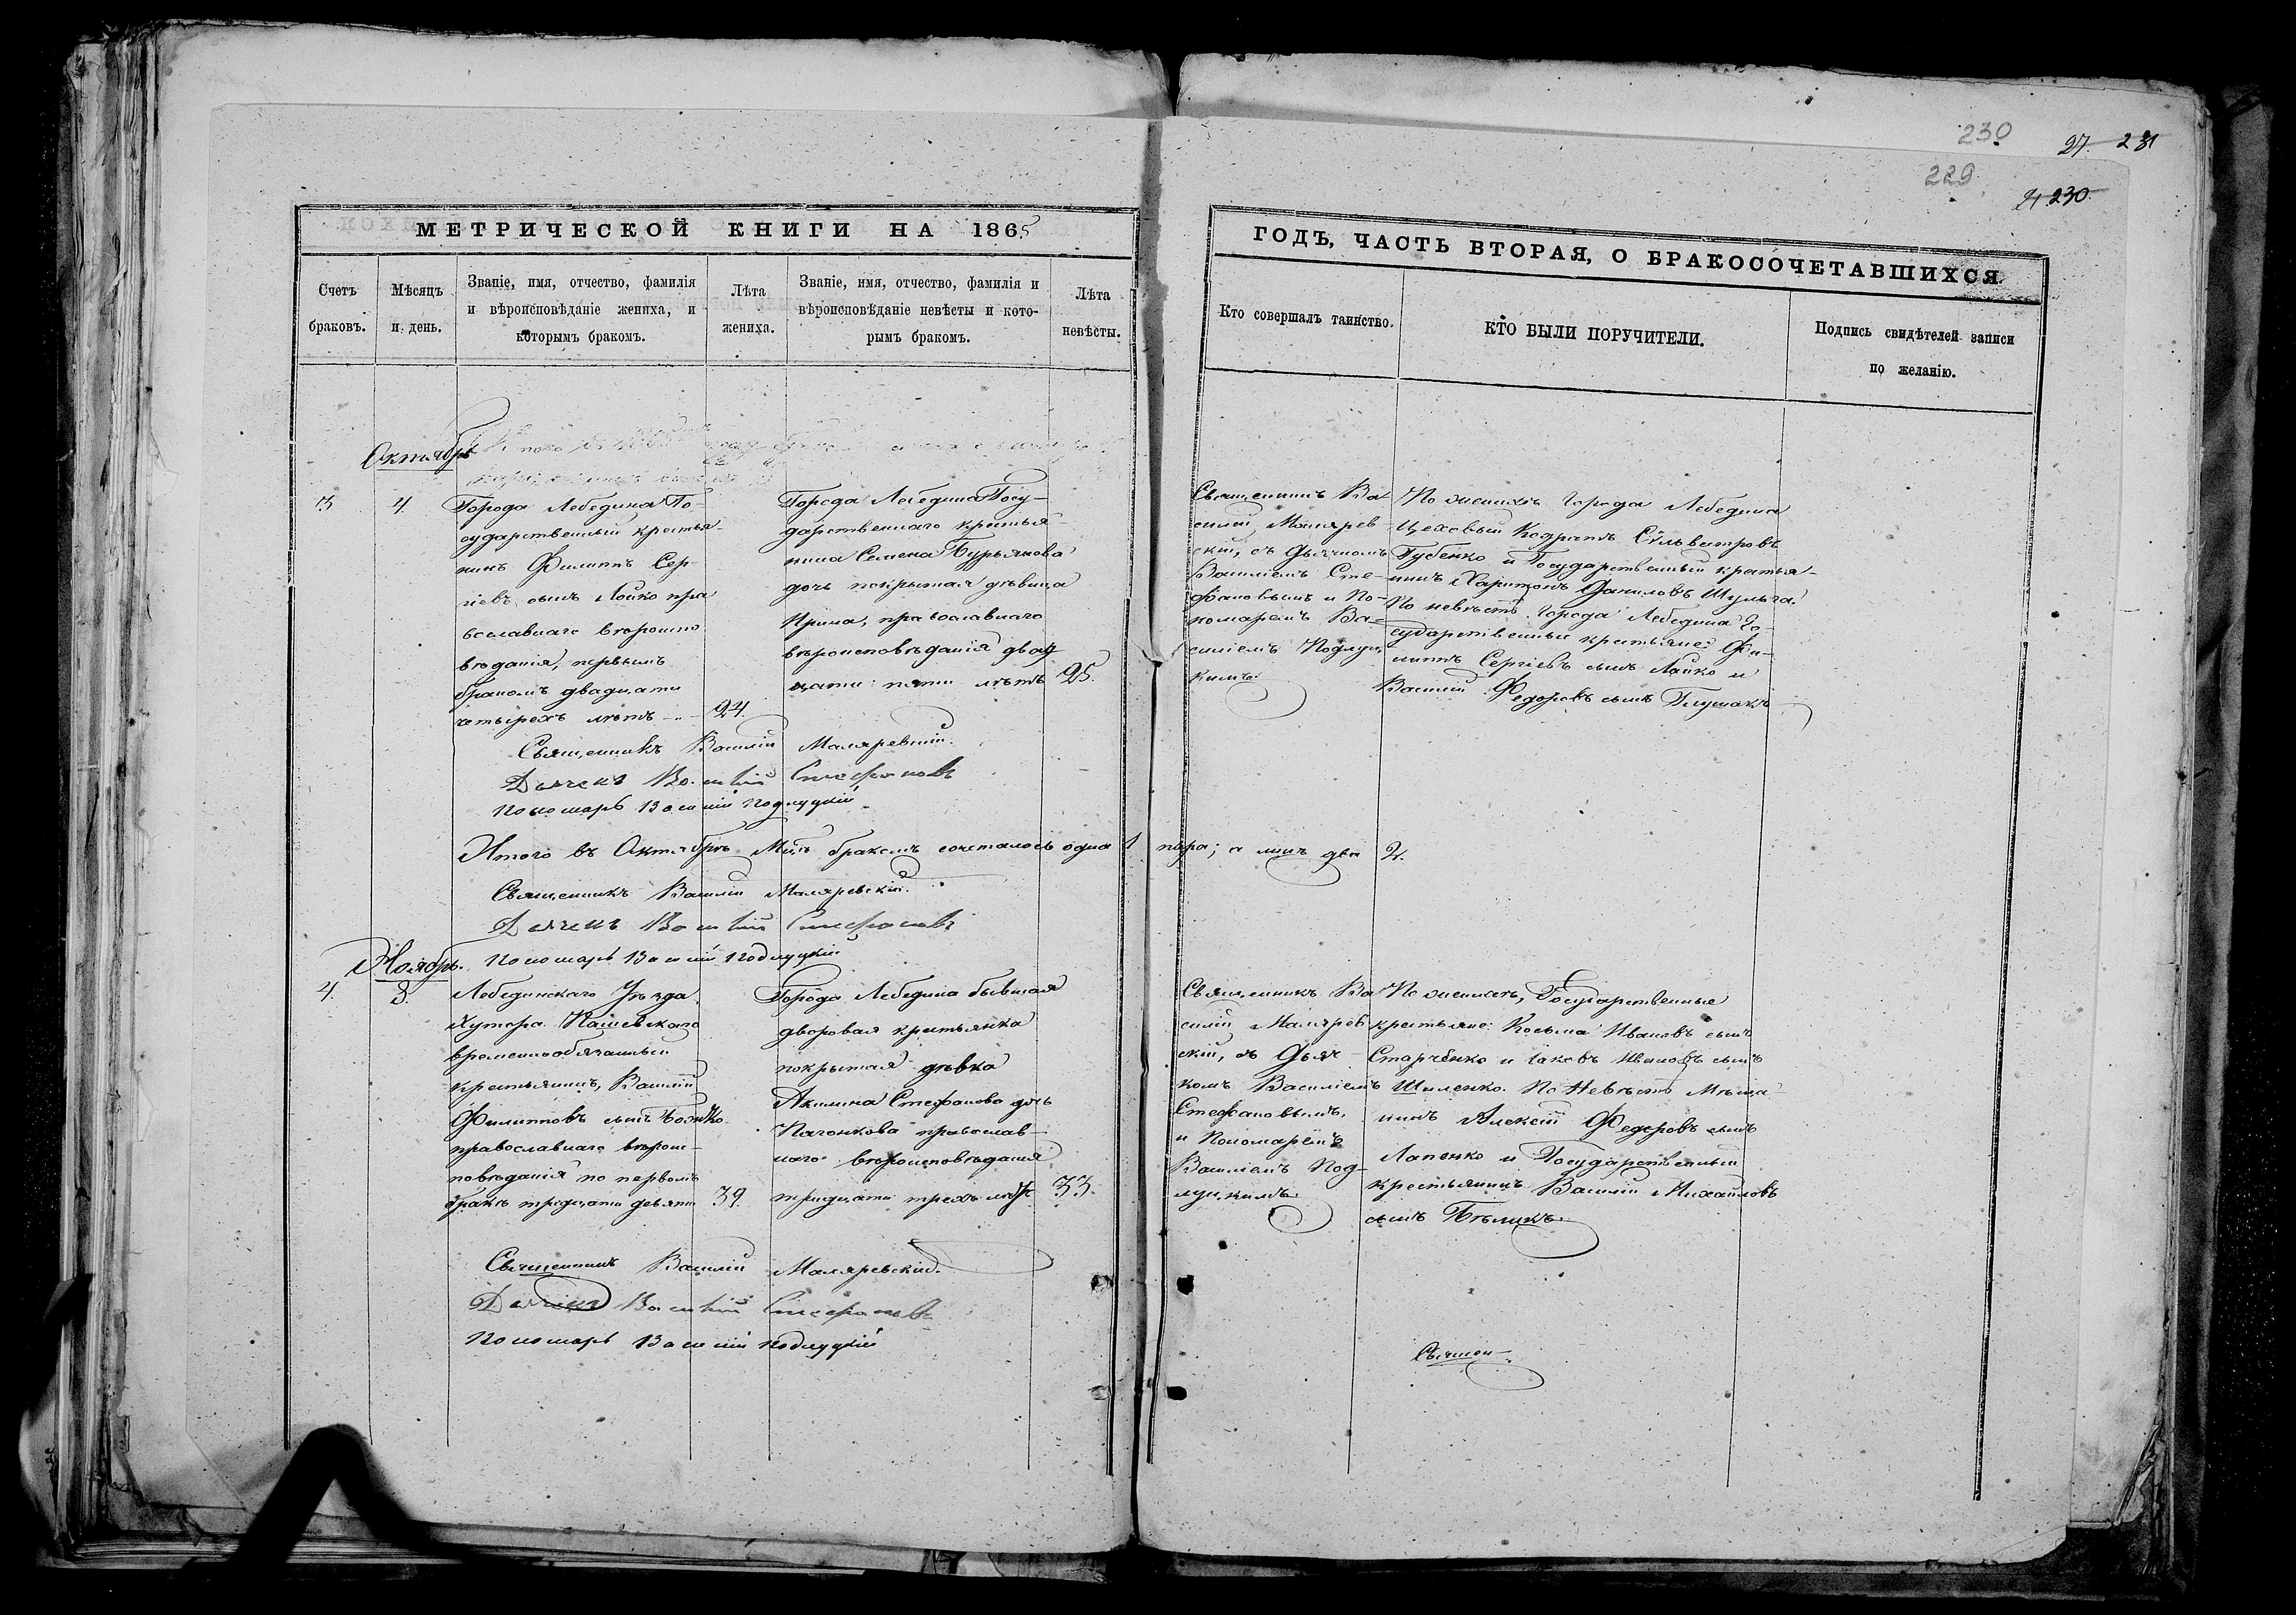 230
27. 231
229
21 230
МЕТРИЧЕСКОЙ КНИГИ НА 1865
ГОДЪ, ЧАСТЬ ВТОРАЯ, О БРАКОСОЧЕТАВШИХСЯ.
Счетъ браковъ.
Мѣсяцъ и день.
Званіе, имя, отчество, фамилія
и вѣроисповѣданіе жениха, и
которымъ бракомъ.
Лѣта жениха.
Званіе, имя, отчество, фамилія и
вѣроисповѣданіе невѣсты и кото-
рымъ бракомъ.
Лѣта невѣсты.
Кто совершалъ таинство.
КТО БЫЛИ ПОРУЧИТЕЛИ.
Подпись свидѣтелей записи
по желанію.
Октябрь
3
4.
Города Лебедина Го-
сударственный крестья-
нинъ Филиппъ Сер-
гіевъ сынъ Лойко пра
вославнаго вѣроиспо
вѣданія, первымъ
бракомъ двадцати
четырехъ лѣтъ
24.
Города Лебедина Госу-
дарственнаго крестья-
нина Семена Бурьянова
дочь покрытая дѣвица
Ирина, православнаго
вѣроисповѣданія двад
цати пяти лѣтъ
25.
Священникъ Ва-
силій Малярев-
скій, съ Дьячкомъ
Василіемъ Сте-
фановымъ и По-
номаремъ Ва-
силіемъ Подлуц-
кимъ.
По женихѣ Города Лебедина
Цеховый Кодратъ Сильвестровъ
Губенко и Государственный крестья-
нинъ Харитонъ Даниловъ Шульга.
По невѣстѣ Города Лебедина Го-
сударственные крестьяне: Фи-
липпъ Сергіевъ сынъ Лайко и
Василій Федоровъ сынъ Глушакъ
Священникъ Василій Маляревскій.
Дьячекъ Василій Стефановъ
Пономарь Василій Подлуцкій
Итого въ Октябрѣ М-цѣ бракомъ сочеталось одна 1 пара; а лицъ два 2.
Священникъ Василій Маляревскій.
Дьячекъ Василій Стефановъ
Пономарь Василій Подлуцкій
Ноябрь.
4.
8.
Лебединскаго Уѣзда
Хутора
временнообязанный
крестьянинъ, Василій
Филипповъ сынъ
православнаго вѣроис-
повѣданія по первомъ
бракѣ тридцати девяти
39.
Города Лебедина бывшая
дворовая крестьянка
покрытая дѣвка
Акилина Стефанова дочь
православ-
наго вѣроисповѣданія
тридцати трехъ лѣтъ
33.
Священникъ Ва
силій Малярев
скій, съ Дьяч-
комъ Василіемъ
Стефановымъ,
и Пономаремъ
Василіемъ Под-
луцкимъ.
По женихѣ, Государственные
крестьяне: Косьма Ивановъ сынъ
Старченко и Іаковъ Ивановъ сынъ
Шиленко. По Невѣстѣ Мѣща-
нинъ Алексій Федоровъ сынъ
Лапенко и Государственный
крестьянинъ Василій Михайловъ
сынъ Бѣликъ.
Священникъ Василій Маляревскій.
Дьячекъ Василій Стефановъ
Пономарь Василій Подлуцкій
Священ-